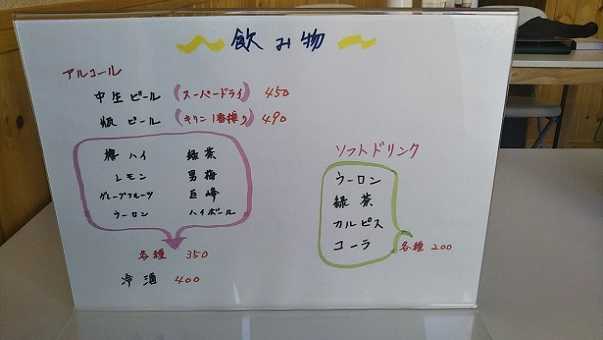 飲み物
アルコール
中生ビール (スーパードライ) 450
瓶ビール (キリン1番搾り) 490
樽ハイ 緑茶
レモン 男梅
グレープフルーツ 巨峰
ウーロン ハイボール
各種 350
冷酒 400
ソフトドリンク
ウーロン
緑茶
カルピス
コーラ 各種 200